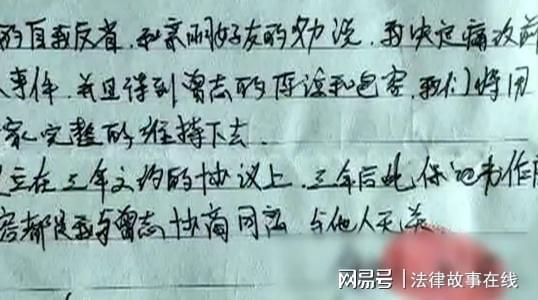 的自我反省,和亲朋好友的劝说,我决定痛改前
事件,并且得到曾志的原谅和包容,我们将用
家完整的维持下去.
立在三年之约的协议上,三年后此保证书作废
容都是我与曾志协商同意 与他人无关
网易号 | 法律故事在线